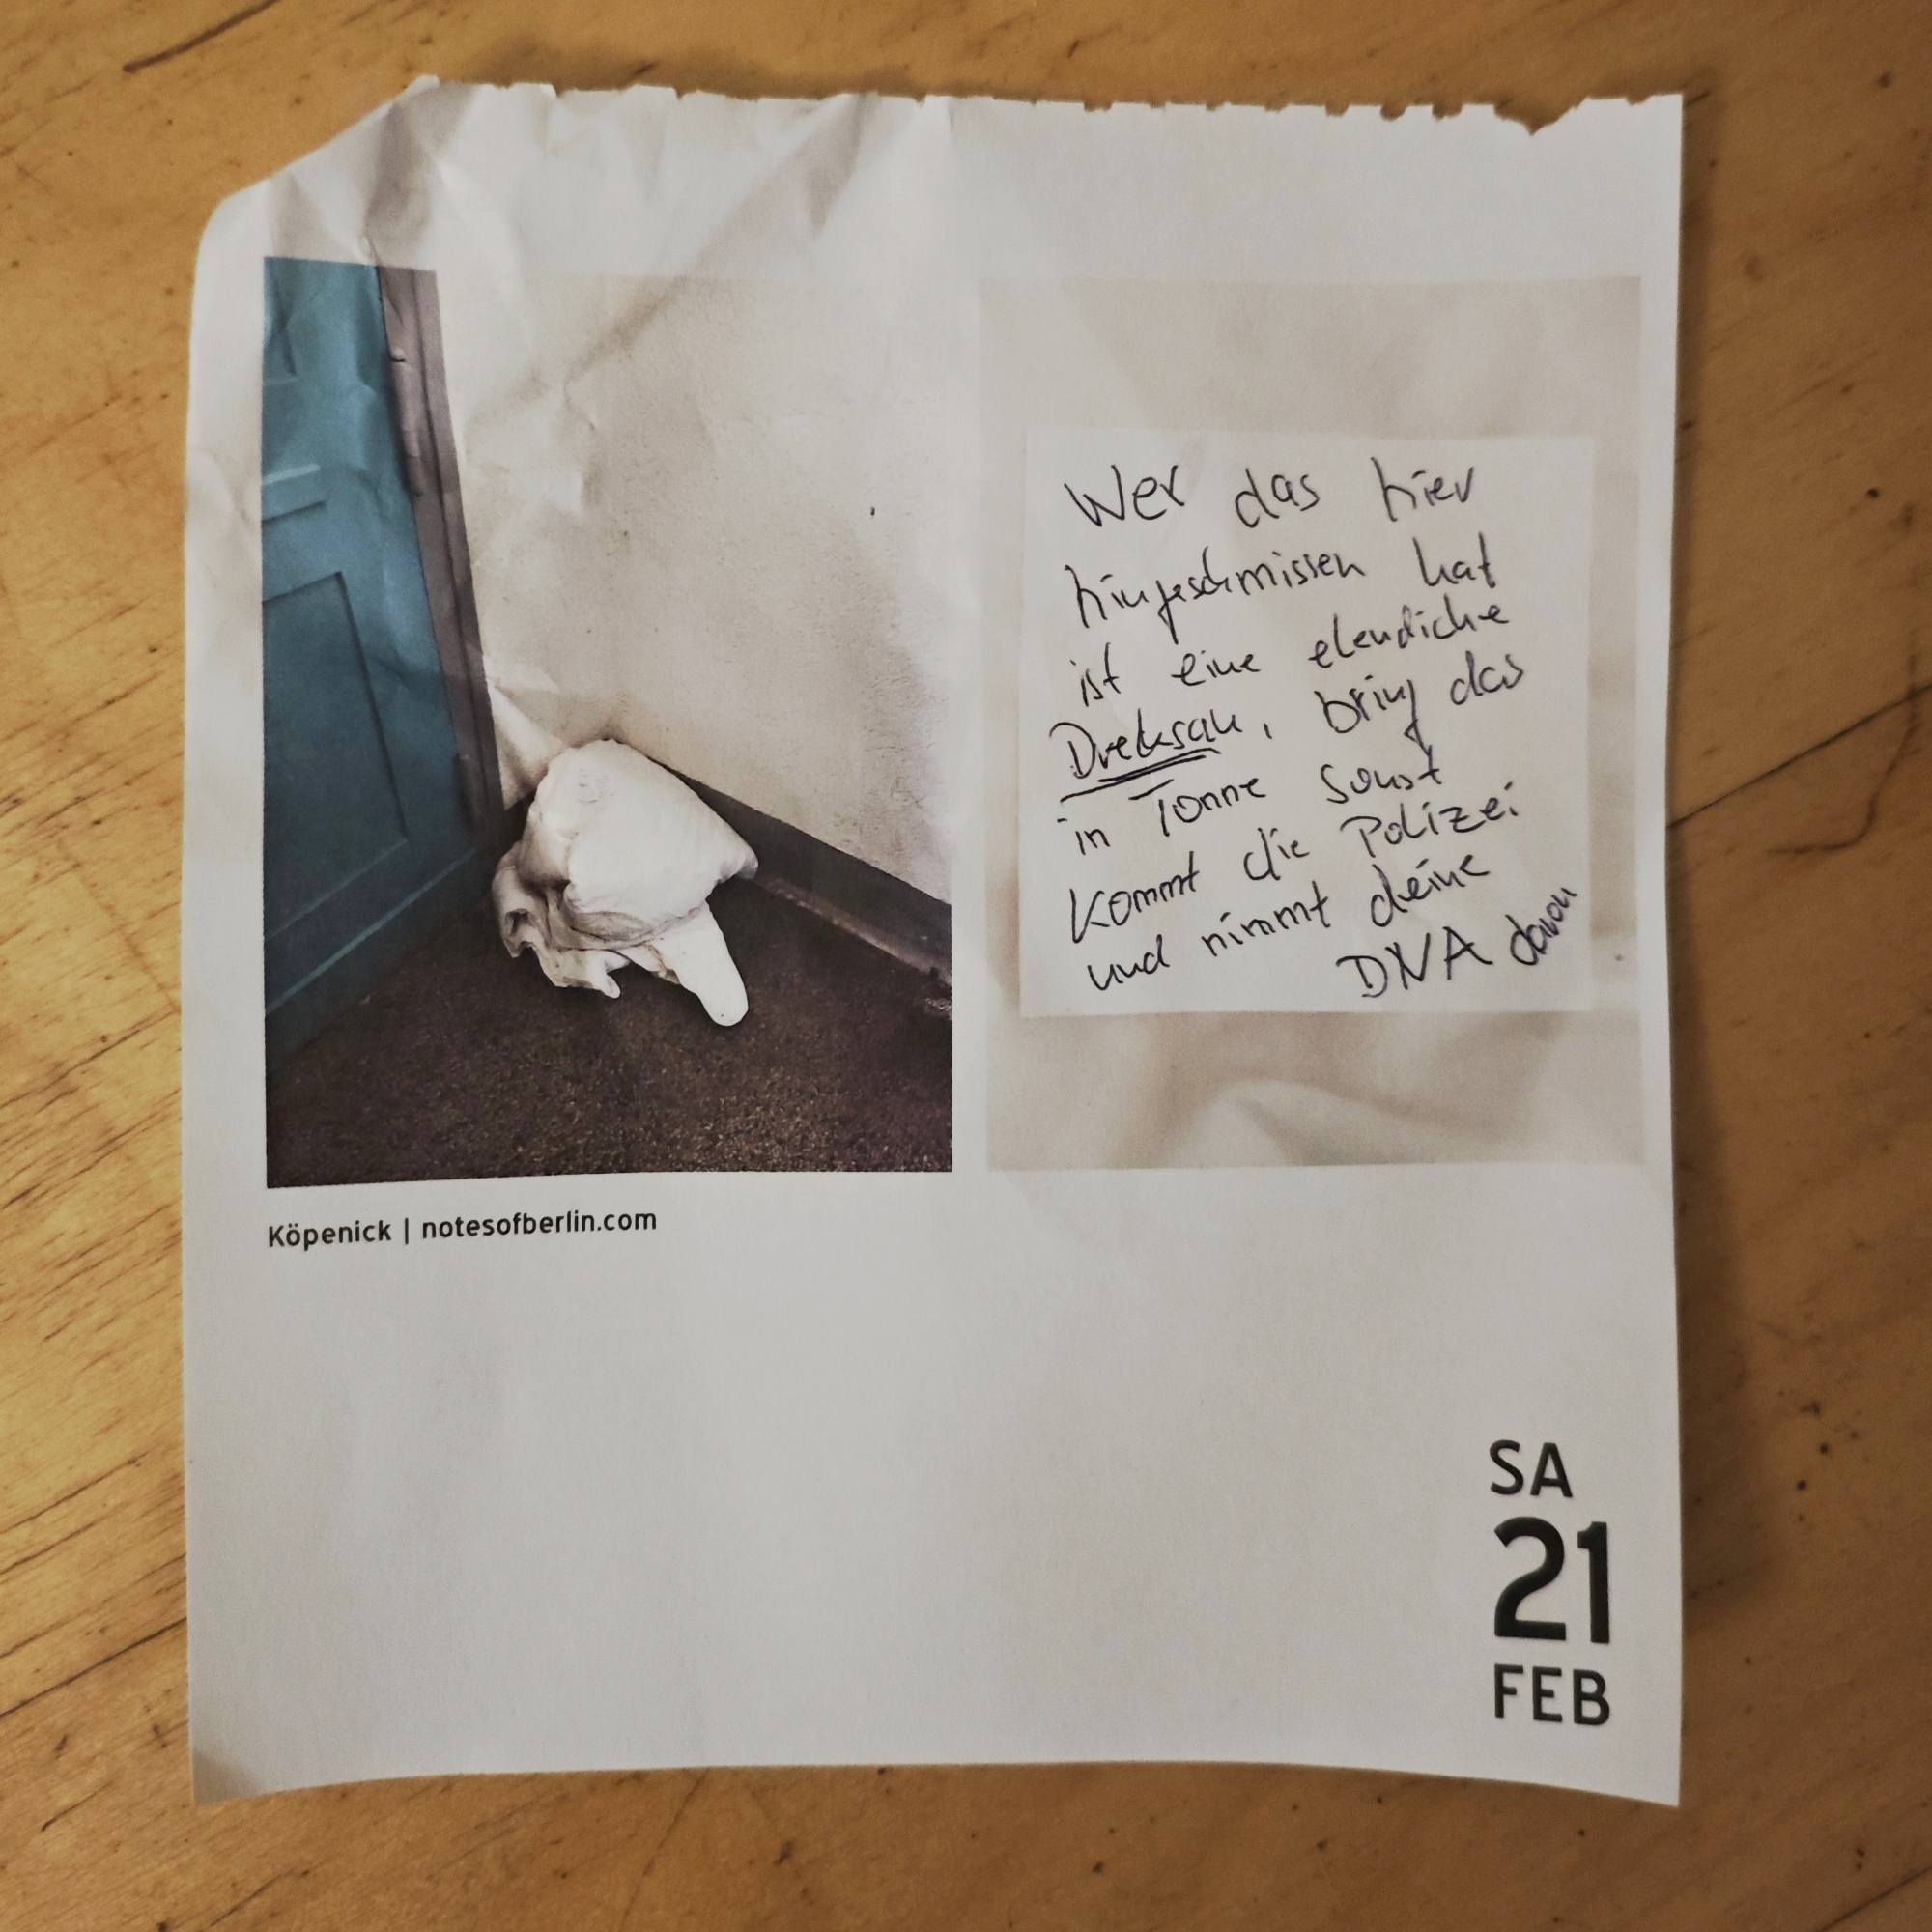 Wer das hier
hingeschmissen hat
ist eine elendiche
Drecksau, bring das
in Tonne sonst
kommt die Polizei
und nimmt deine
DNA davon
Köpenick | notesofberlin.com
SA
21
FEB